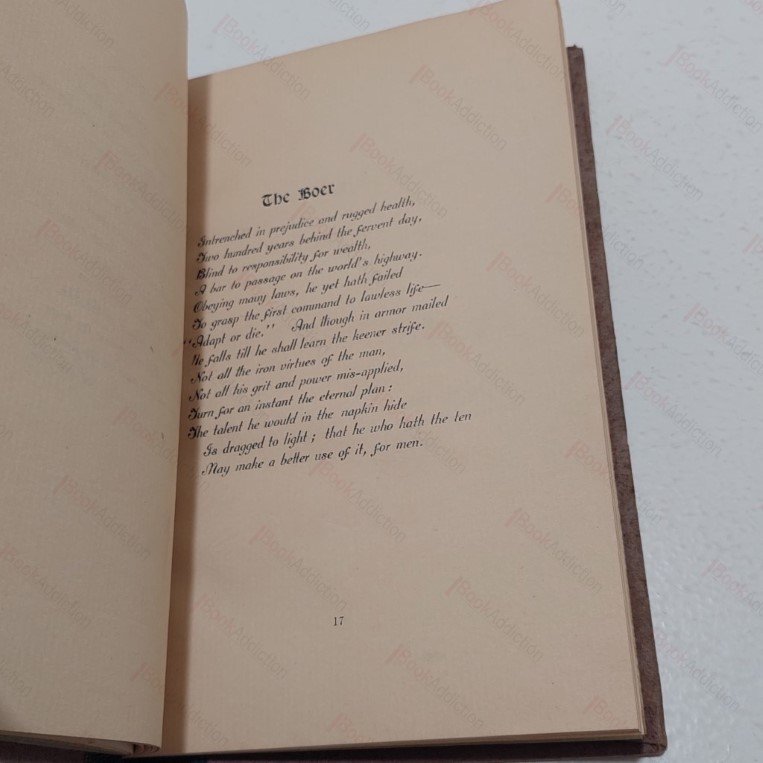 The Boer
Intrenched in prejudice and rugged health,
Two hundred years behind the fervent day,
Blind to responsibility for wealth,
A bar to passage on the world's highway.
Obeying many laws, he yet hath failed
To grasp the first command to lawless life—
"Adapt or die." And though in armor mailed
He falls till he shall learn the keener strife.
Not all the iron virtues of the man,
Not all his grit and power mis-applied,
Turn for an instant the eternal plan:
The talent he would in the napkin hide
Is dragged to light; that he who hath the ten
May make a better use of it, for men.
17
BookAddiction